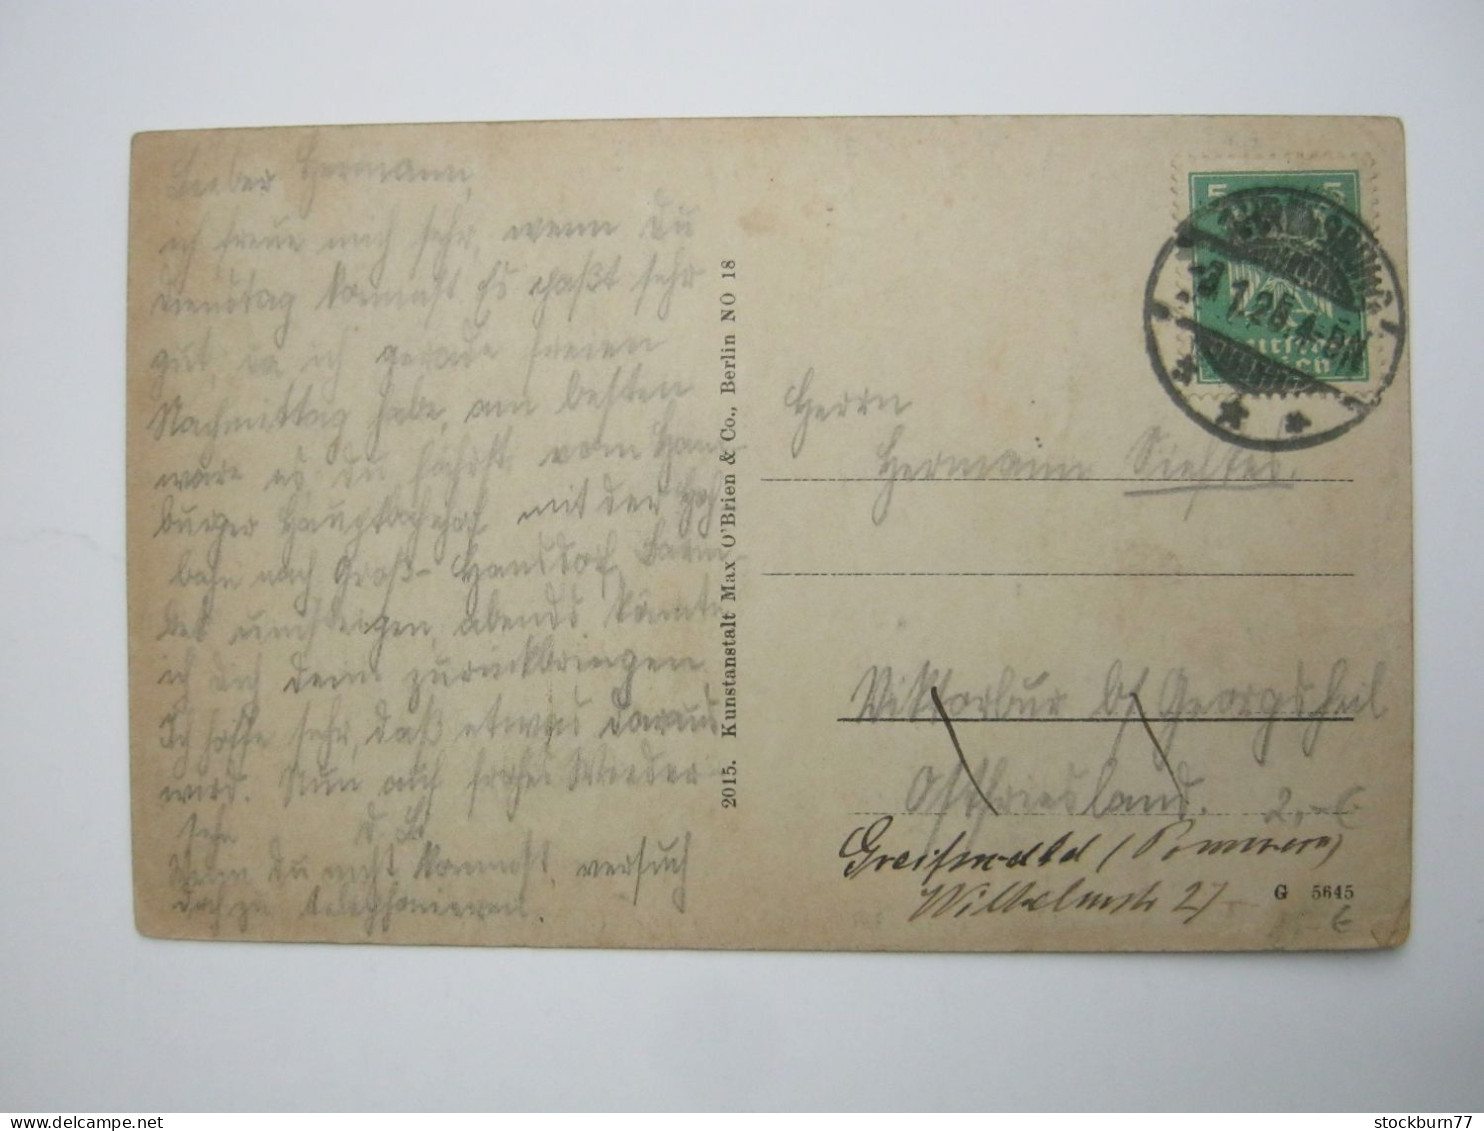 Lieber Hermann,
ich freue mich sehr, wenn Du
Dienstag kommst Es paßt sehr
gut, da ich gerade freien
Nachmittag habe, am besten
wäre es Du fährst vom Ham-
burger Hauptbahnhof mit der Hoch
bahn nach Groß-Hansdorf, Barm
bek umsteigen, abends könnte
ich Dich dann zurückbringen
Ich hoffe sehr, daß etwas daraus
wird. Nun auf frohes Wieder-
sehn
Wenn Du nicht kommst, versuch
doch zu telephonieren.
2015. Kunstanstalt Max O'Brien & Co., Berlin NO 18
5 5
7.26.4-5N
Herrn
Hermann
Viktorbur bf Georgsheil
Ostfriesland. 2,-€
Greifswald (Pommern)
Wilhelmstr 27
G 5645
stockburn77